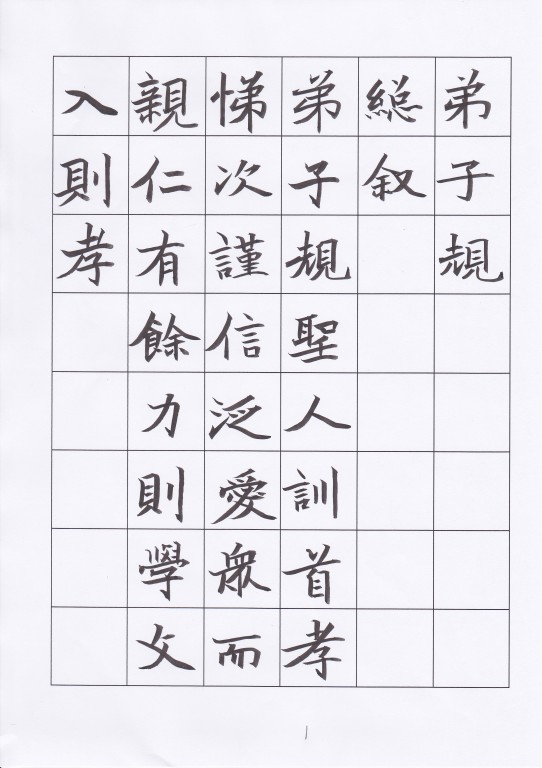 弟子規
總叙
弟子規聖人訓首孝
悌次謹信泛愛眾而
親仁有餘力則學文
入則孝
1